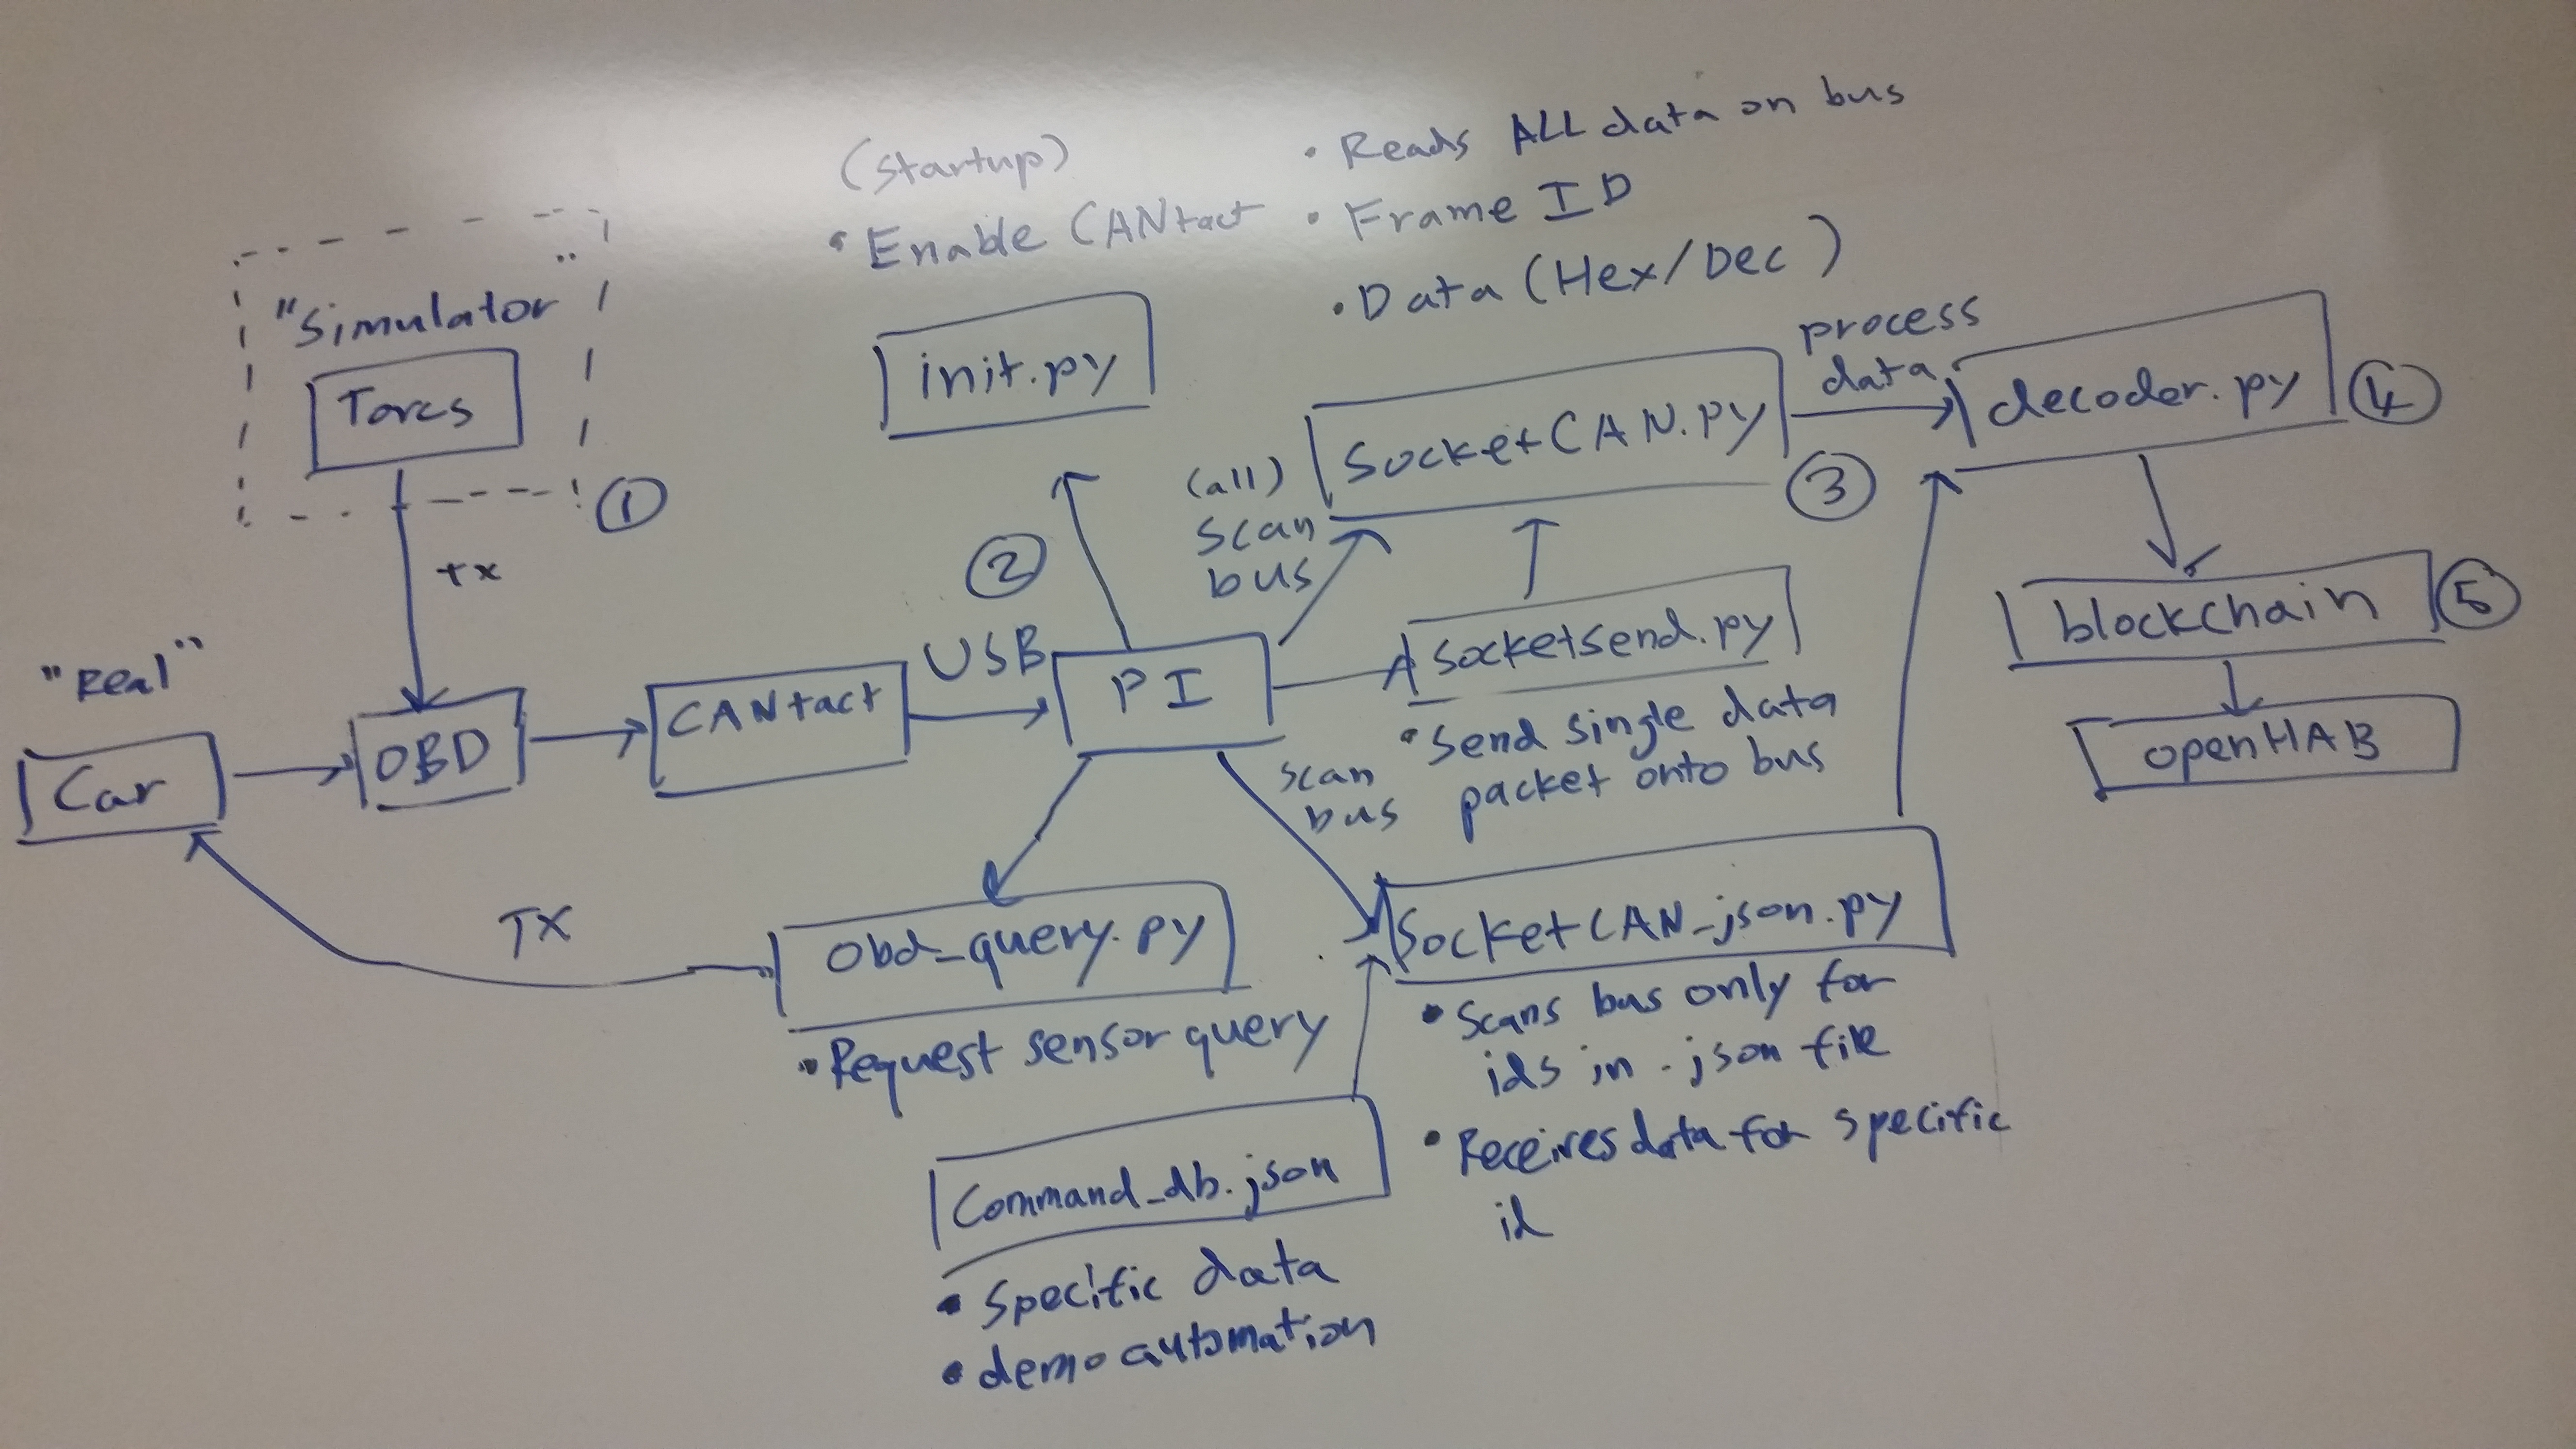 (startup)
• Enable CANtact
• Reads ALL data on bus
• Frame ID
• Data (Hex/Dec)
"Simulator"
Torcs
1
tx
init.py
2
(all)
scan
bus
SocketCAN.py
3
process
data
decoder.py
4
"Real"
Car
OBD
CANtact
USB
PI
socketsend.py
• Send single data
packet onto bus
blockchain
5
openHAB
scan
bus
TX
obd_query.py
• Request sensor query
SocketCAN_json.py
• Scans bus only for
ids in .json file
• Receives data for specific
id
Command_db.json
• Specific data
• demo automation